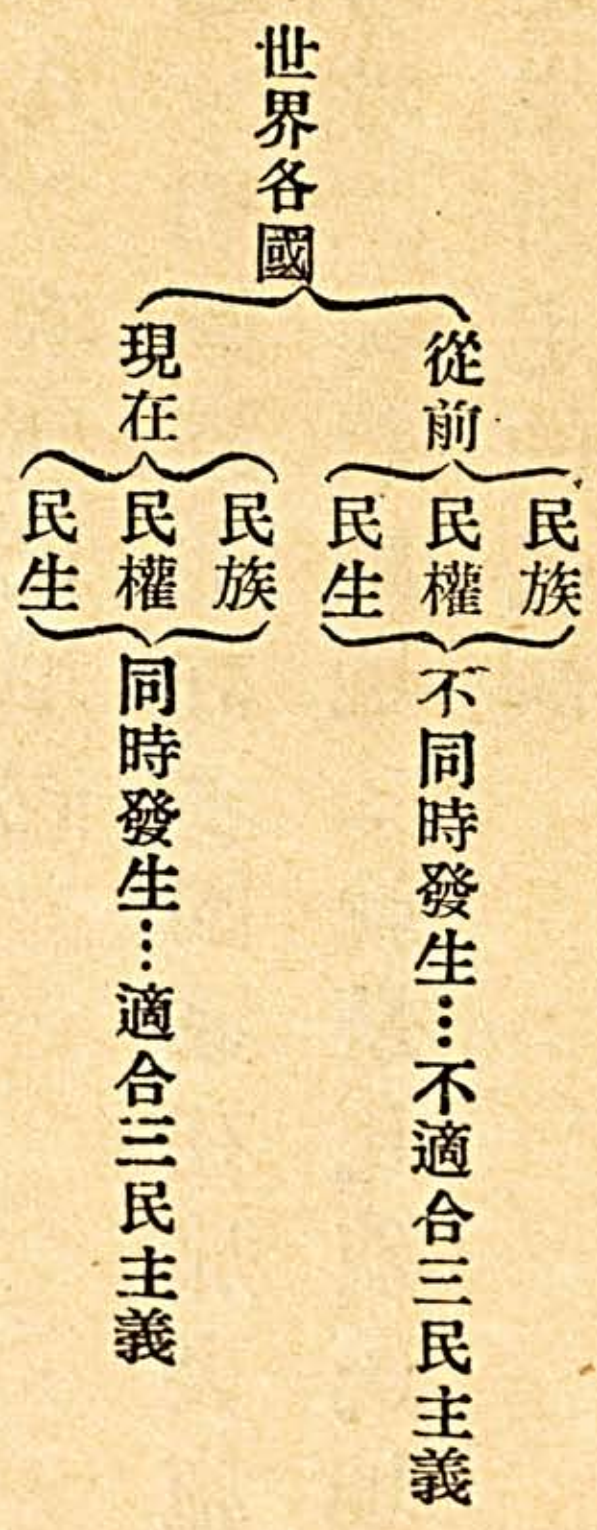 世界各國
從前
民族
民權
民生
不同時發生…不適合三民主義
現在
民族
民權
民生
同時發生…適合三民主義